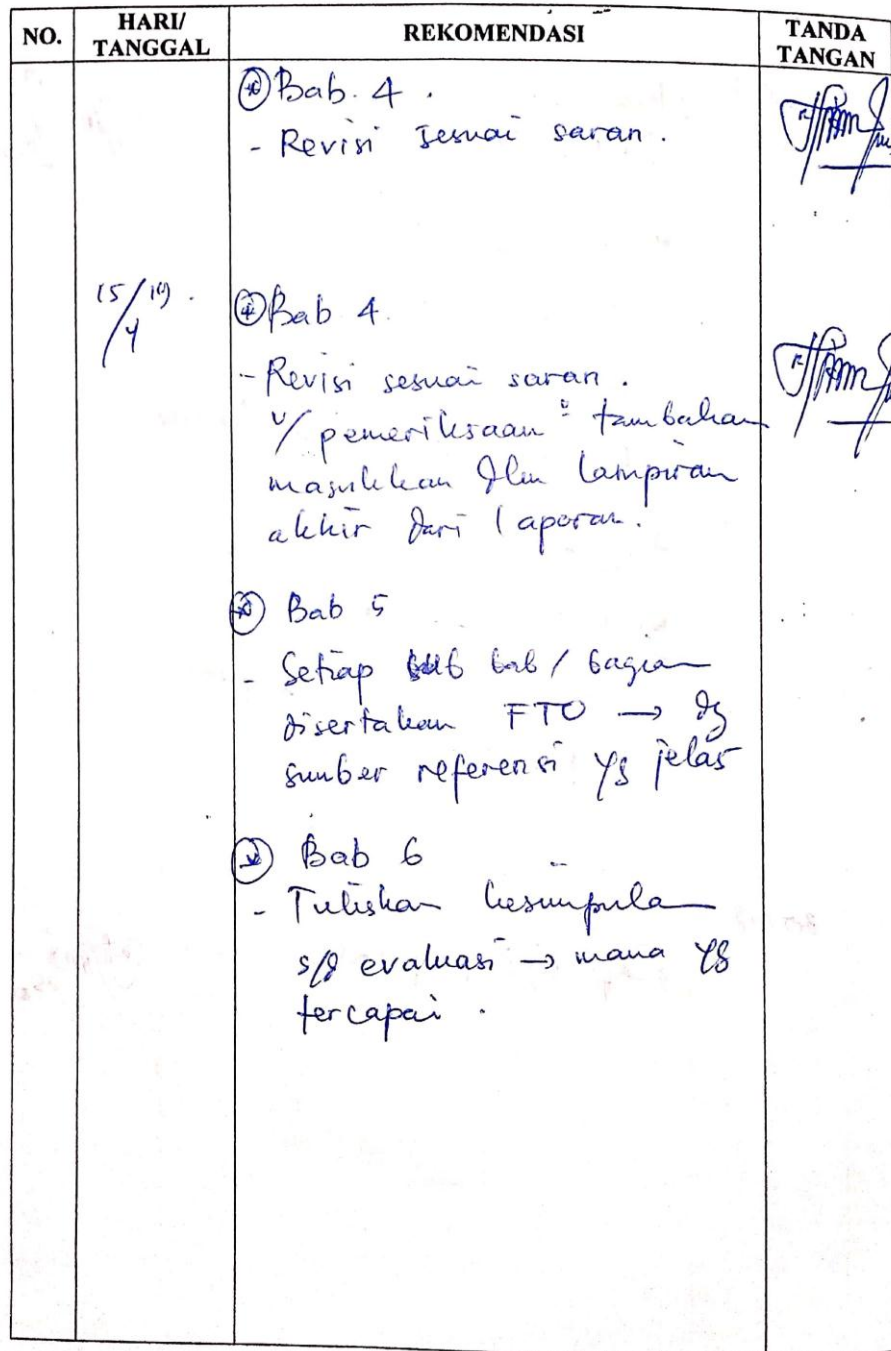 NO.
HARI/
TANGGAL
REKOMENDASI
TANDA
TANGAN
Bab. 4.
- Revisi sesuai saran.
15/4 19.
Bab 4
- Revisi sesuai saran.
u/ pemeriksaan² tambahan
masukkan dlm lampiran
akhir dari laporan.
Bab 5
- Setiap sub bab / bagian
disertakan FTO → dg
sumber referensi yg jelas
Bab 6
- Tuliskan kesimpulan
s/d evaluasi → mana yg
tercapai.